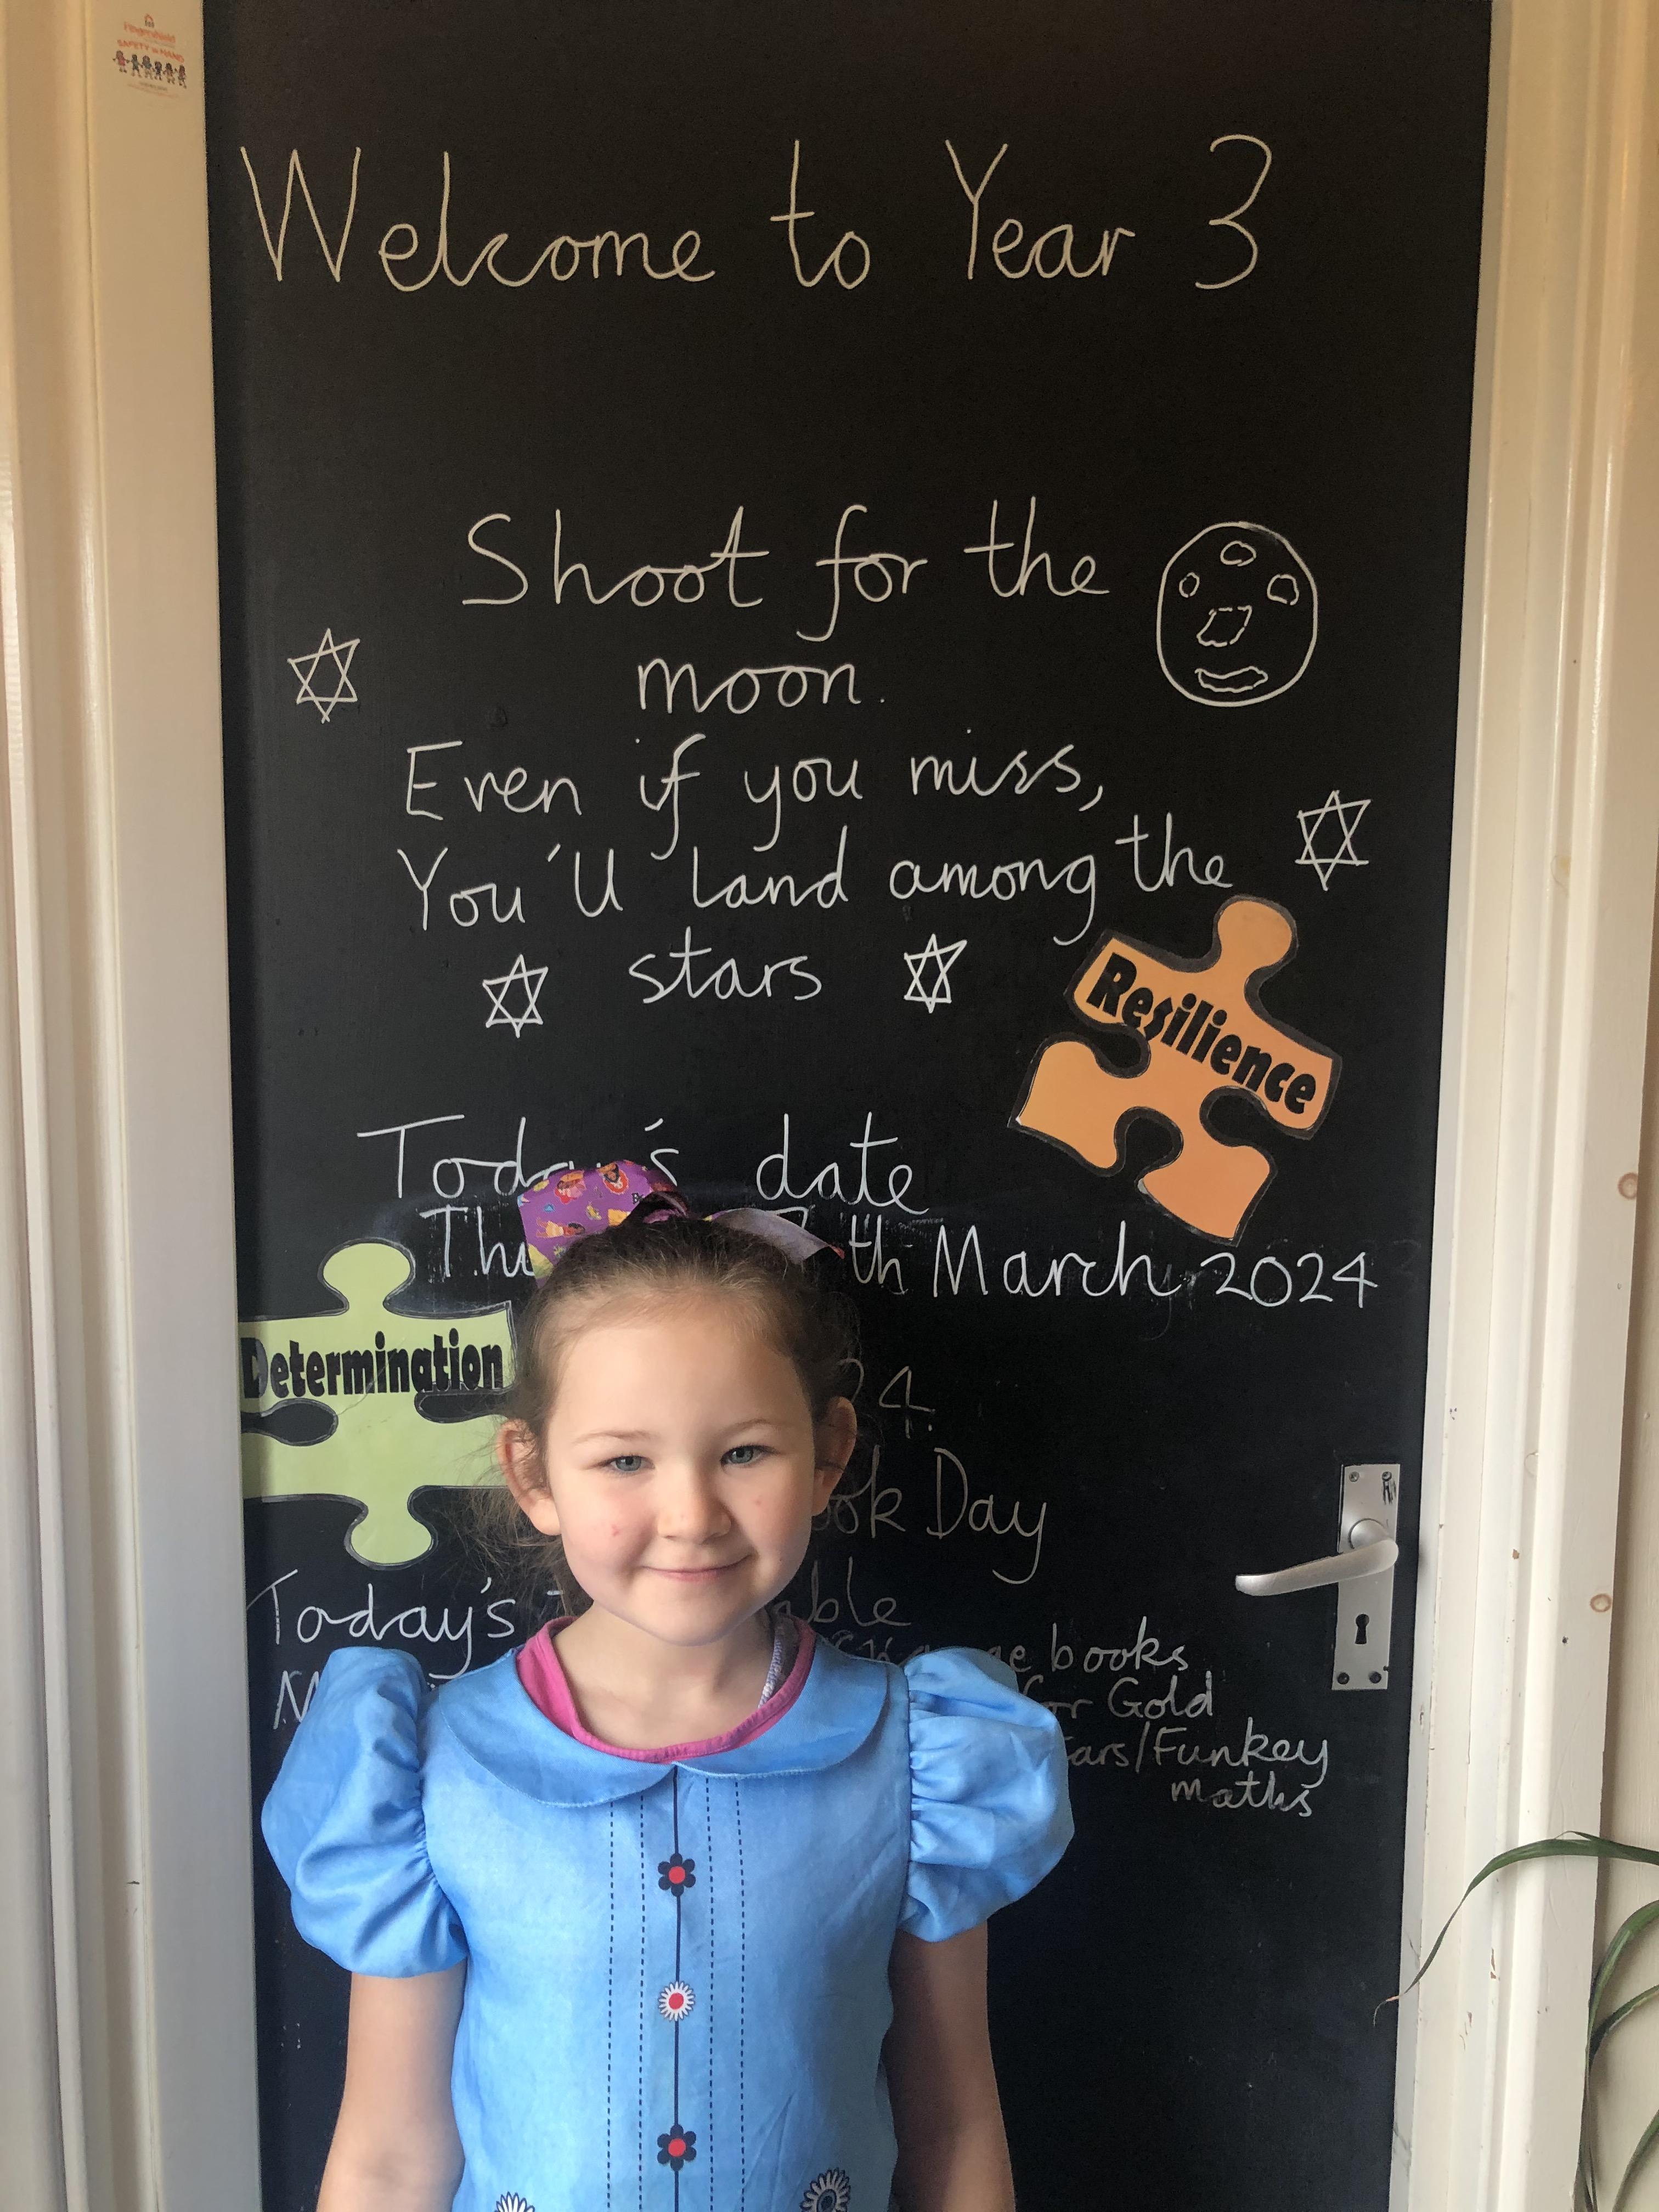 SAFETY in HAND
Welcome to Year 3
Shoot for the
moon.
Even if you miss,
You'll land among the
stars
Resilience
Today's date
th March 2024
Determination
24.
Day
Today's
books
for Gold
/Funkey
maths